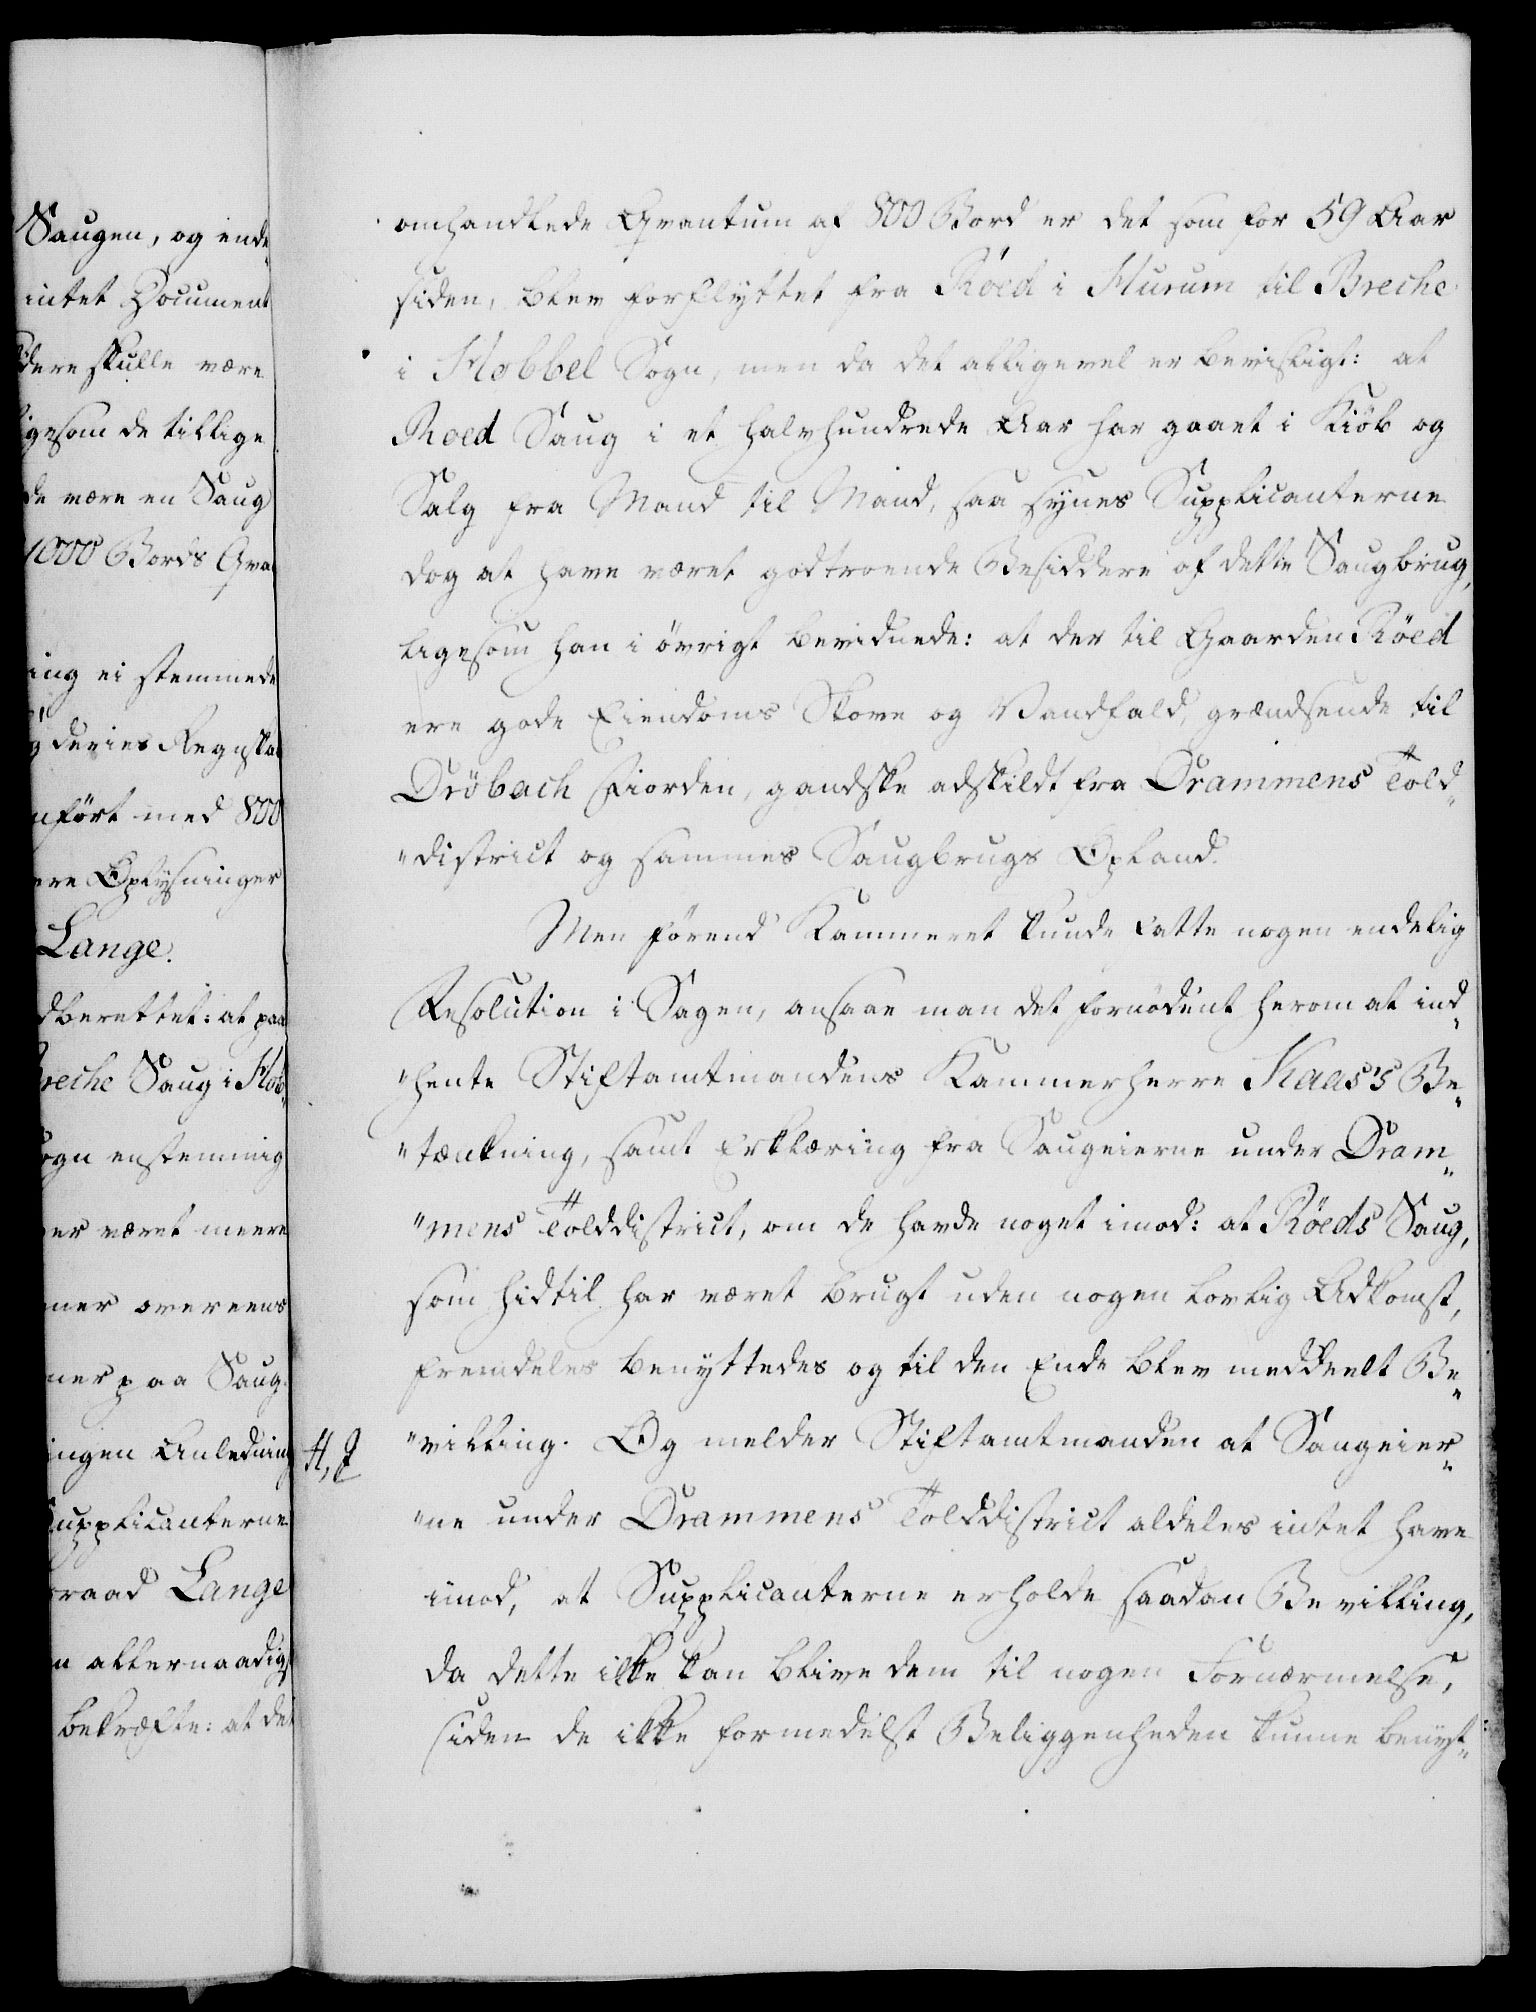 Saugen, og ende„
intet Document
dere skulle være
igesom de tillige
de være en Saug
1000 Bords Qva
ing ei stemmede
g deries Regnska
nført med 800
ere Oplysninger
Lange.
dberettet: at paa
reche Saug i Hob„
ogn enstemmig
er været meere
mer overeens
ner paa Saug„
ingen Anledning
Supplicanterne
raad Lange
n allernaadigst
bekræfte: at det
omhandlede Qvantum af 800 Bord er det som for 59 Aar
siden, blev forflyttet fra Röed i Hurum til Breche
i Hobbel Sogn, men da det alligevel er beviisligt: at
Roed Saug i et halvhundrede Aar har gaaet i Kiöb og
Salg fra Mand til Mand, saa synes Supplicanterne
dog at have været godtroende Besiddere af dette Saugbrug,
ligesom han i övrigt bevidnede: at der til Gaarden Röed
ere gode Eiendoms Skove og Vandfald, grændsende til
Dröbach Fiorden, gandske adskildt fra Drammens Told„
„district og sammes Saugbrugs Opland.
Men förend Kammeret kunde fatte nogen endelig
Resolution i Sagen, ansaae man det fornödent herom at ind„
„hente Stiftamtmandens Kammerherre Kaas's Be„
„tænkning, samt Erklæring fra Saugeierne under Dram„
„mens Tolddistrict, om de havde noget imod: at Röeds Saug,
som hidtil har været brugt uden nogen lovlig Adkomst,
fremdeles benyttedes og til den Ende blev meddeelt Be„
H, J
„villing. Og melder Stiftamtmanden at Saugeier„
„ne under Drammens Tolddistrict aldeles intet have
imod, at Supplicanterne erholde saadan Bevilling,
da dette ikke kan blive dem til nogen Fornærmelse,
siden de ikke formedelst Beliggenheden kunne benyt„